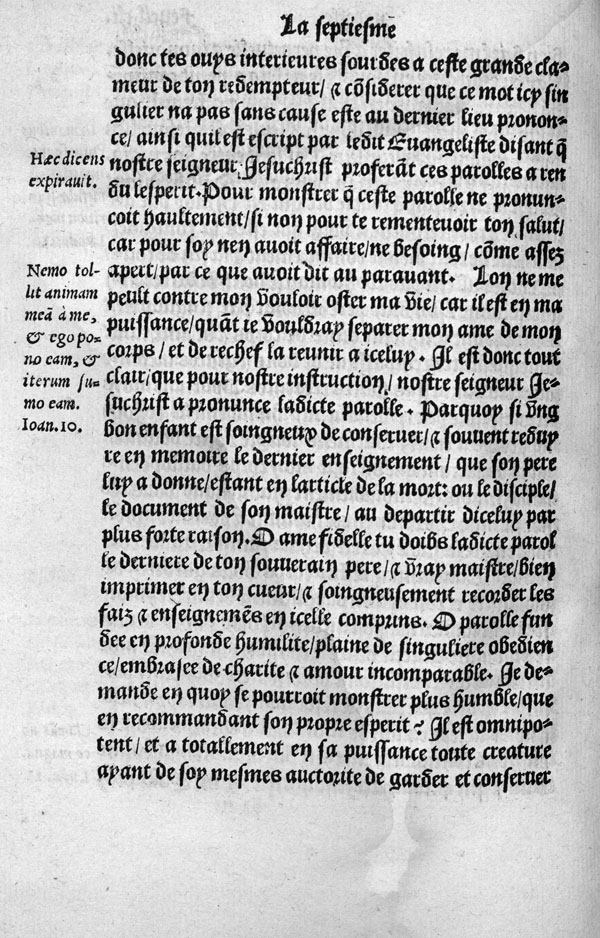 La septiesmē
donc tes ouys interieures sourdes a ceste grande cla-
meur de ton redempteur/ ⁊ cōsiderer que ce mot icy sin
gulier na pas sans cause este au dernier lieu pronon-
ce/ ainsi quil est escript par ledit Euangeliste disant q̄
nostre seigneur Jesuchrist proferāt ces parolles a ren
du lesperit. Pour monstrer q̄ ceste parolle ne pronun-
coit haultement/ si non pour te rementevoir ton salut/
car pour soy nen avoit affaire/ ne besoing/ cōme assez
apert/ par ce que avoit dit au paravant. Lon ne me
peult contre mon vouloir oster ma vie/ car il est en ma
puissance/ quāt ie vouldray separer mon ame de mon
corps/ et de rechef la reunir a iceluy. Il est donc tout
clair/ que pour nostre instruction/ nostre seigneur Je-
suchrist a pronunce ladicte parolle. Parquoy si vng
bon enfant est soingneux de conseruer/ ⁊ souuent reduy
re en memoire le dernier enseignement/ que son pere
luy a donne/ estant en larticle de la mort: ou le disciple/
le document de son maistre/ au departir diceluy par
plus forte raison. O ame fidelle tu doibs ladicte parol
le derniere de ton souverain pere/ ⁊ vray maistre/ bien
imprimer en ton cueur/ ⁊ soingneusement recorder les
faiz ⁊ enseignemēs en icelle comprins. O parolle fun
dee en profonde humilite/ plaine de singuliere obedien
ce/ embrasee de charite ⁊ amour incomparable. Je de-
mande en quoy se pourroit monstrer plus humble/ que
en recommandant son propre esperit ? Il est omnipo-
tent/ et a totallement en sa puissance toute creature
ayant de soy mesmes auctorite de garder et conseruer
Hæc dicens
expirauit.
Nemo tol-
lit animam
meā à me,
& ego po-
no eam, &
iterum su-
mo eam.
Ioan. 10.